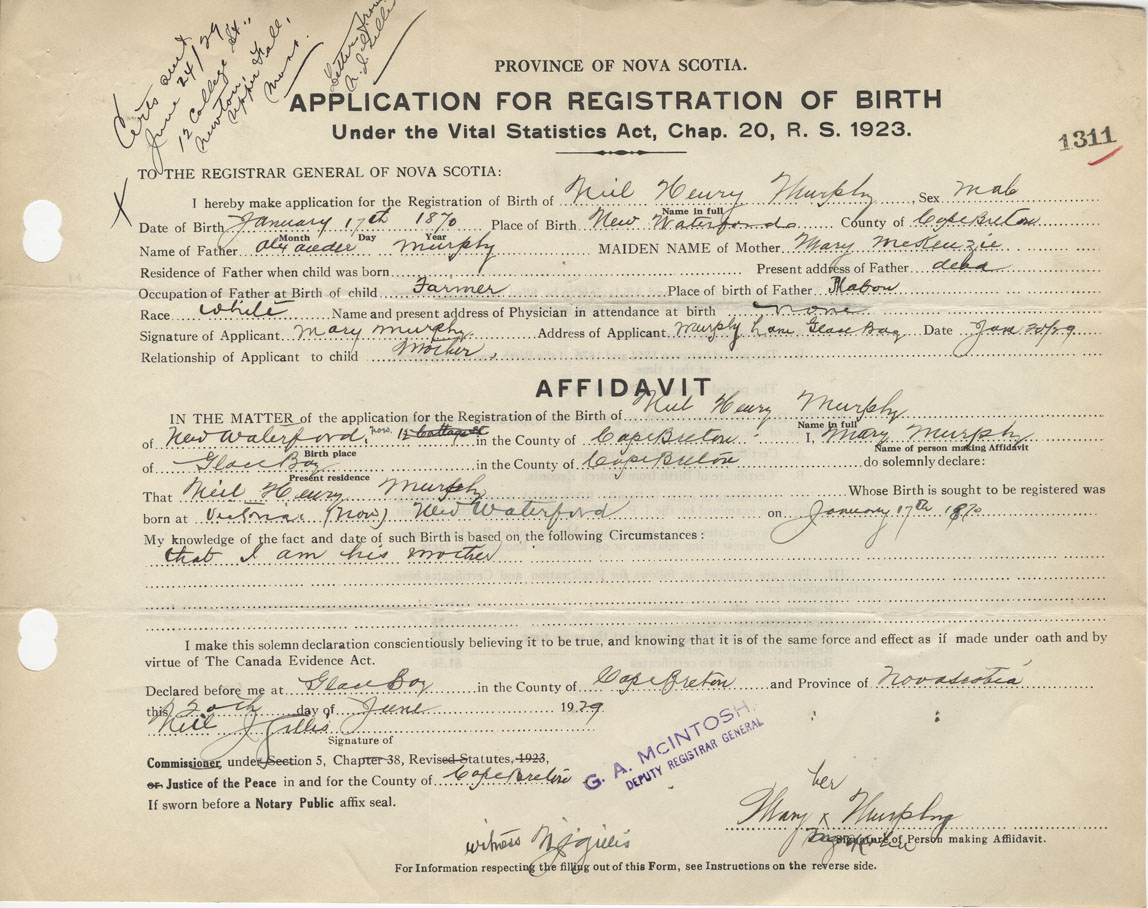 Certs sent
June 24/29
12 College St.,
Newton,
Upper Fall,
Mass.
Letter from
N. J. Gillis
PROVINCE OF NOVA SCOTIA.
APPLICATION FOR REGISTRATION OF BIRTH
Under the Vital Statistics Act, Chap. 20, R. S. 1923.
1311
X
TO THE REGISTRAR GENERAL OF NOVA SCOTIA:
I hereby make application for the Registration of Birth of Neil Henry Murphy Sex Male
Name in full
Date of Birth January 17th 1870 Place of Birth New Waterford County of Cape Breton
Month Day Year
Name of Father Alexander Murphy MAIDEN NAME of Mother Mary McKenzie
Residence of Father when child was born Present address of Father dead
Occupation of Father at Birth of child Farmer Place of birth of Father Mabou
Race White Name and present address of Physician in attendance at birth none
Signature of Applicant Mary Murphy Address of Applicant Murphy Lane Glace Bay Date Jan 20/29
Relationship of Applicant to child Mother,
AFFIDAVIT
IN THE MATTER of the application for the Registration of the Birth of Neil Henry Murphy
Name in full
of New Waterford, now in the County of Cape Breton I, Mary Murphy
Birth place Name of person making Affidavit
of Glace Bay in the County of Cape Breton do solemnly declare:
Present residence
That Neil Henry Murphy Whose Birth is sought to be registered was
born at Victoria (Now) New Waterford on January 17th 1870
My knowledge of the fact and date of such Birth is based on the following Circumstances:
that I am his mother
I make this solemn declaration conscientiously believing it to be true, and knowing that it is of the same force and effect as if made under oath and by
virtue of The Canada Evidence Act.
Declared before me at Glace Bay in the County of Cape Breton and Province of Nova Scotia
this 20th day of June 1929
Neil J Gillis
Signature of
Commissioner, under Section 5, Chapter 38, Revised Statutes, 1923,
or Justice of the Peace in and for the County of Cape Breton
If sworn before a Notary Public affix seal.
G. A. McINTOSH.
DEPUTY REGISTRAR GENERAL
her
Mary x Murphy
Signature of Person making Affiidavit.
witness N J Gillis
For Information respecting the filling out of this Form, see Instructions on the reverse side.